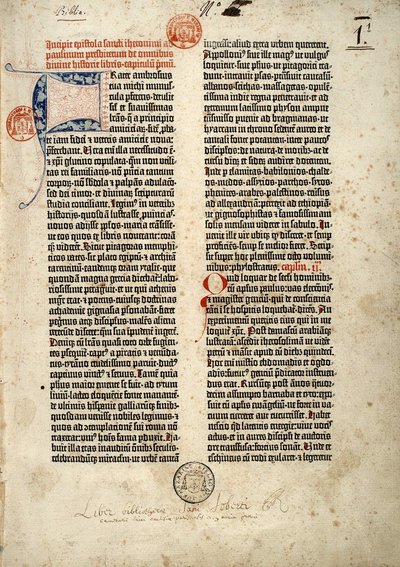 Biblia.
N.º
1.ª
Incipit epistola sancti iheronimi ad
paulinum presbiterum de omnibus
diuine historie libris·capitulū pmū.
Frater ambrosius
tua michi munus-
cula pferens·detulit
sil et suauissimas
lrās·q̄ a principio
amiciciaꝝ·fidē pba-
te iam fidei ⁊ veteris amicicie noua
pferebant. Vera em̄ illa necessitudo ē·
⁊ xpī glutino copulata·qm̄ non vtili-
tas rei familiaris·nō pn̄cia tantum
corpoꝝ·nō sbdola ⁊ palpās adulacō·
sed dei timor·et diuinaꝝ scripturarū
studia conciliant. Legim⁹ in veterib⁹
historijs·quosdā lustrasse puincias·
nouos adijsse pplos·maria trāsisse·
ut eos quos ex libris nouerant·corā
qꝫ viderēt. Sicut pitagoras memphi-
ticos vates·sic plato egiptū ⁊ architā
tarentinū·eandemqꝫ oram ytalie·que
quondā magna grecia dicebat̄·labo-
riosissime peragrauit·et ut qui athenis
mgr̄ erat ⁊ potens·cuiusqꝫ doctrinas
achademie gignasia psonabāt·fieret
peginus atqꝫ discipulus·malēs aliena
verecunde discere·q̄m sua īpudent̄ ingere̅.
Deniqꝫ cū lrās quasi toto orbe fugien-
tes psequit̄·captꝰ a piratis ⁊ venūda-
tus·tyrāno crudelissimo paruit·ductꝰ
captiuus vinctꝰ ⁊ seruus. Tamē quia
philosophus maior emente se fuit·
ad tytum liuiū·lacteo eloquētie fonte manantē·
de vltimis hispanie galliarūqꝫ finibꝰ·
quosdam venisse nobiles legimus·⁊
quos ad ctemplacionē sui roma nō
traxerat·vniꝰ hoīs fama pduxit. Ha-
buit illa etas inauditū omībus seculis·
celebrandūqꝫ miraclm·ut vrbē tantā
ingressi·aliud extra vrbem quererent.
Appolloniꝰ siue ille magꝰ ut vulgus
loquitur·siue phūs·ut pitagorici tra-
dunt·intrauit psas·ptransiuit caucasū·
albanos·scithas·massagetas·opulē-
tissima indie regna penetrauit·et ad
extremum latissimo physon ampne
trāsmisso puenit ad bragmanas·ut
hyarcam in throno sedentē aureo et de
tantali fonte potantem·inter paucos
discipulos·de natura·de moribꝰ·ac de
cursu dieꝝ et sideꝝ audiret docentem.
Inde p elamitas·babilonios·chalde-
os·medos·assyrios·parthos·syros·
phenices·arabes·palestinos·reuersꝰ
ad allexandriā·perrexit ad ethiopiā·
ut gignosophistas ⁊ famosissimam
solis mensam videret in sabulo. In-
uenit ille vir vbiqꝫ qd disceret·et semp
proficiens·semp se melior fieret. Scrip-
sit super hoc plenissime octo volumi-
nibus·phylostratus. caplm·ij.
Quid loquar de secli hominibꝰ·
cū aplūs paulus·vas electōis·
⁊ magister genciū·qui de consciencia
tanti ī se hospitis loquebat̄·dicēs. An
experimentū queritis eius qui in me
loquit̄ xpc̄. Post damascū arabiāqꝫ
lustratā·ascēdit iherosolimā ut videt̄
petrū ⁊ māsit apud eū diebꝰ quindeci.
Hoc em̄ misterio ebdomadis et ogdo-
adis·futurꝰ genciū pdicator instruen-
dus erat. Rursūqꝫ post ānos q̄tuor-
decim assumpto barnaba et tyto·expo-
suit cū aplis euāgeliū·ne forte in va-
num curreret aut cucurrisset. Habet
nescio qd latentis energie·viue vocis
actus·et in aures discipli de auctoris
ore transfusa·fortius sonat. Unde et
eschineus cū rodi exularet·⁊ legeretur